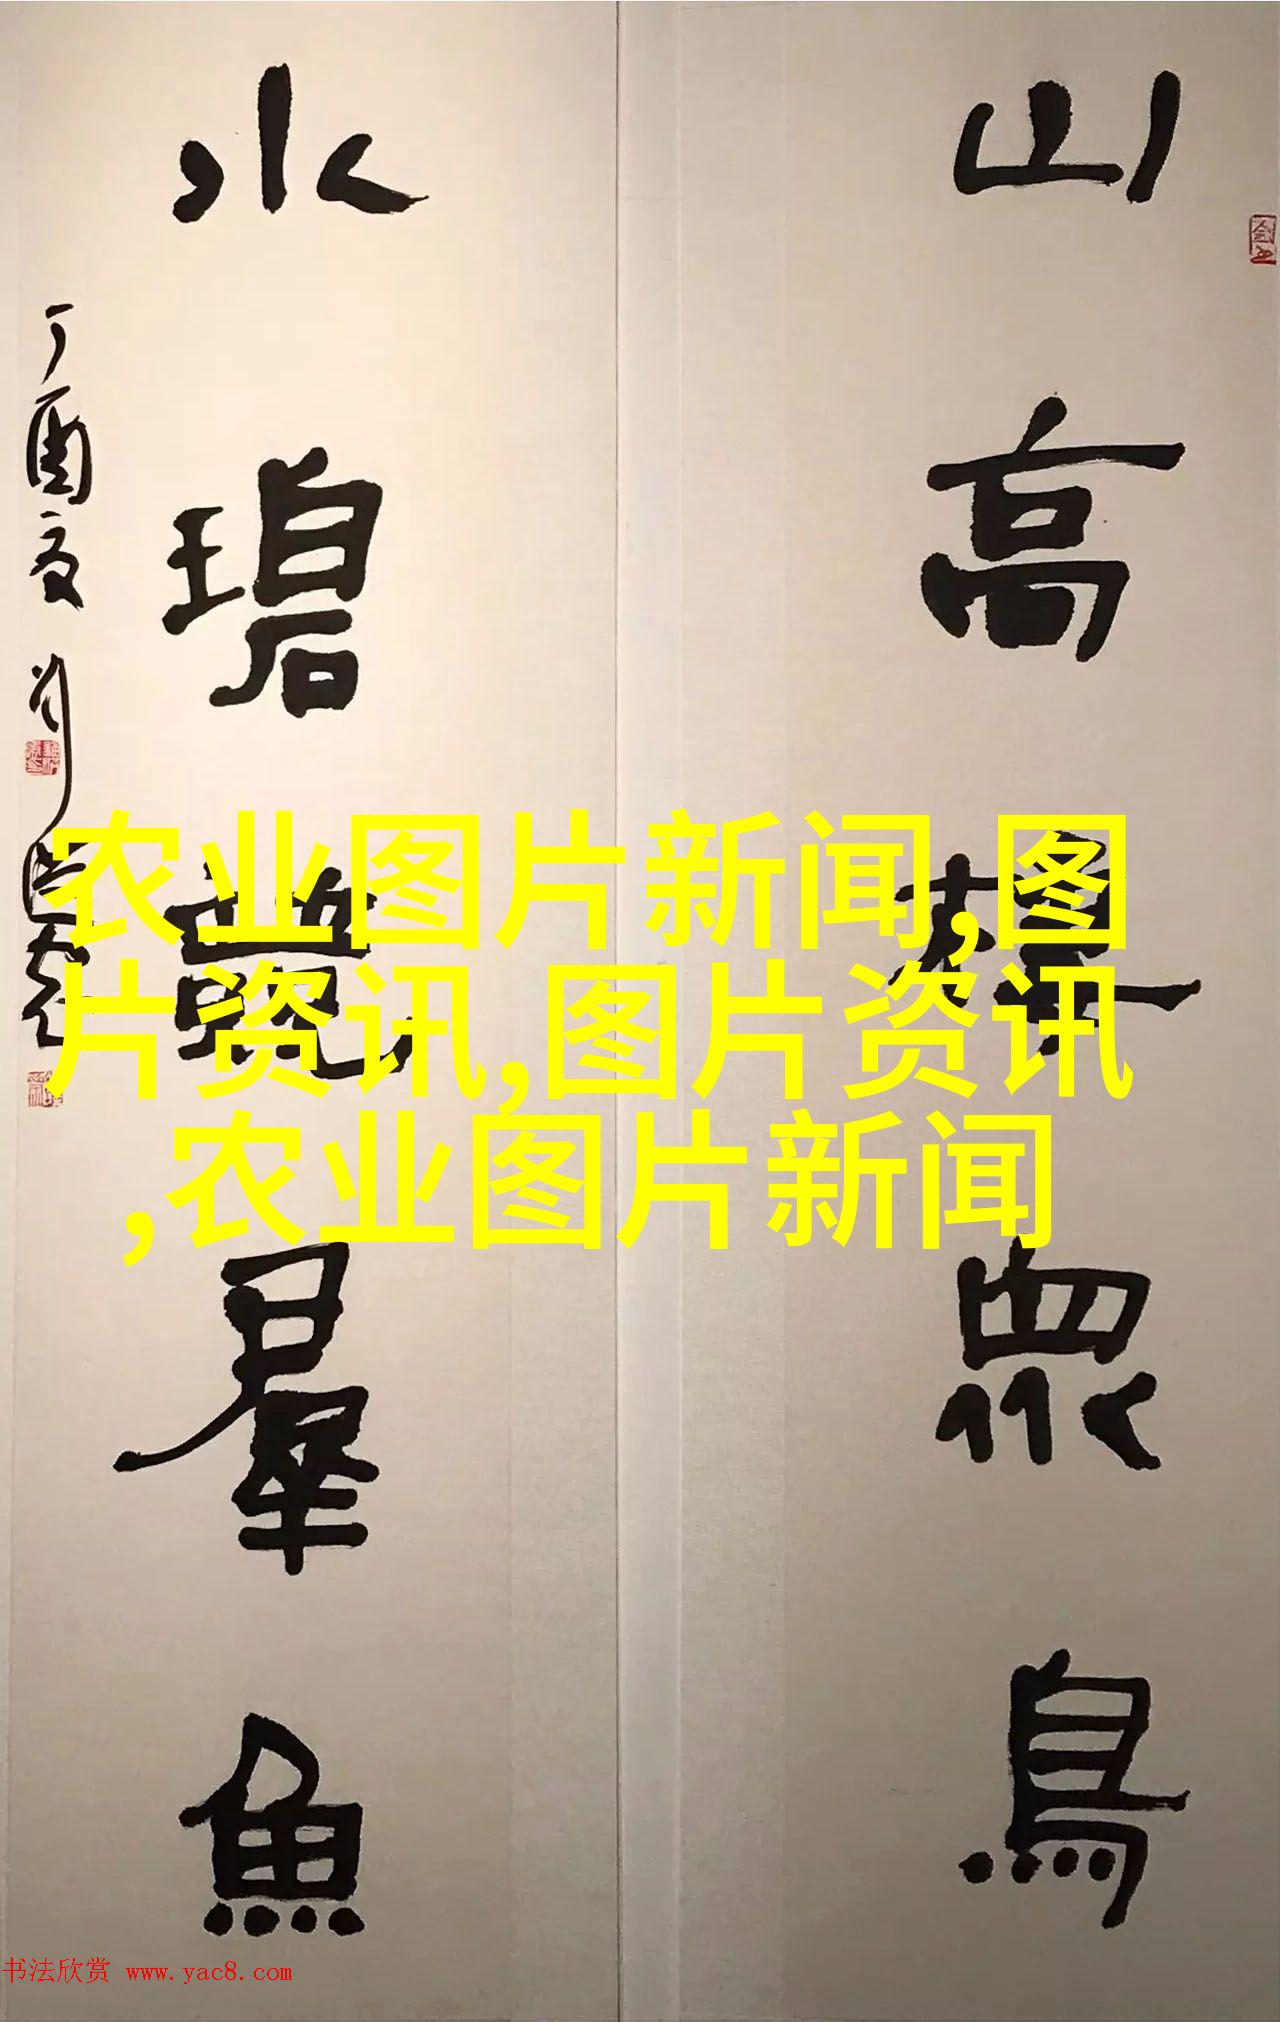 山高楼眾鳥
水碧戲羣魚
丁酉夏
农业图片新闻,图
片资讯,图片资讯
,农业图片新闻
书法欣赏 www.yac8.com